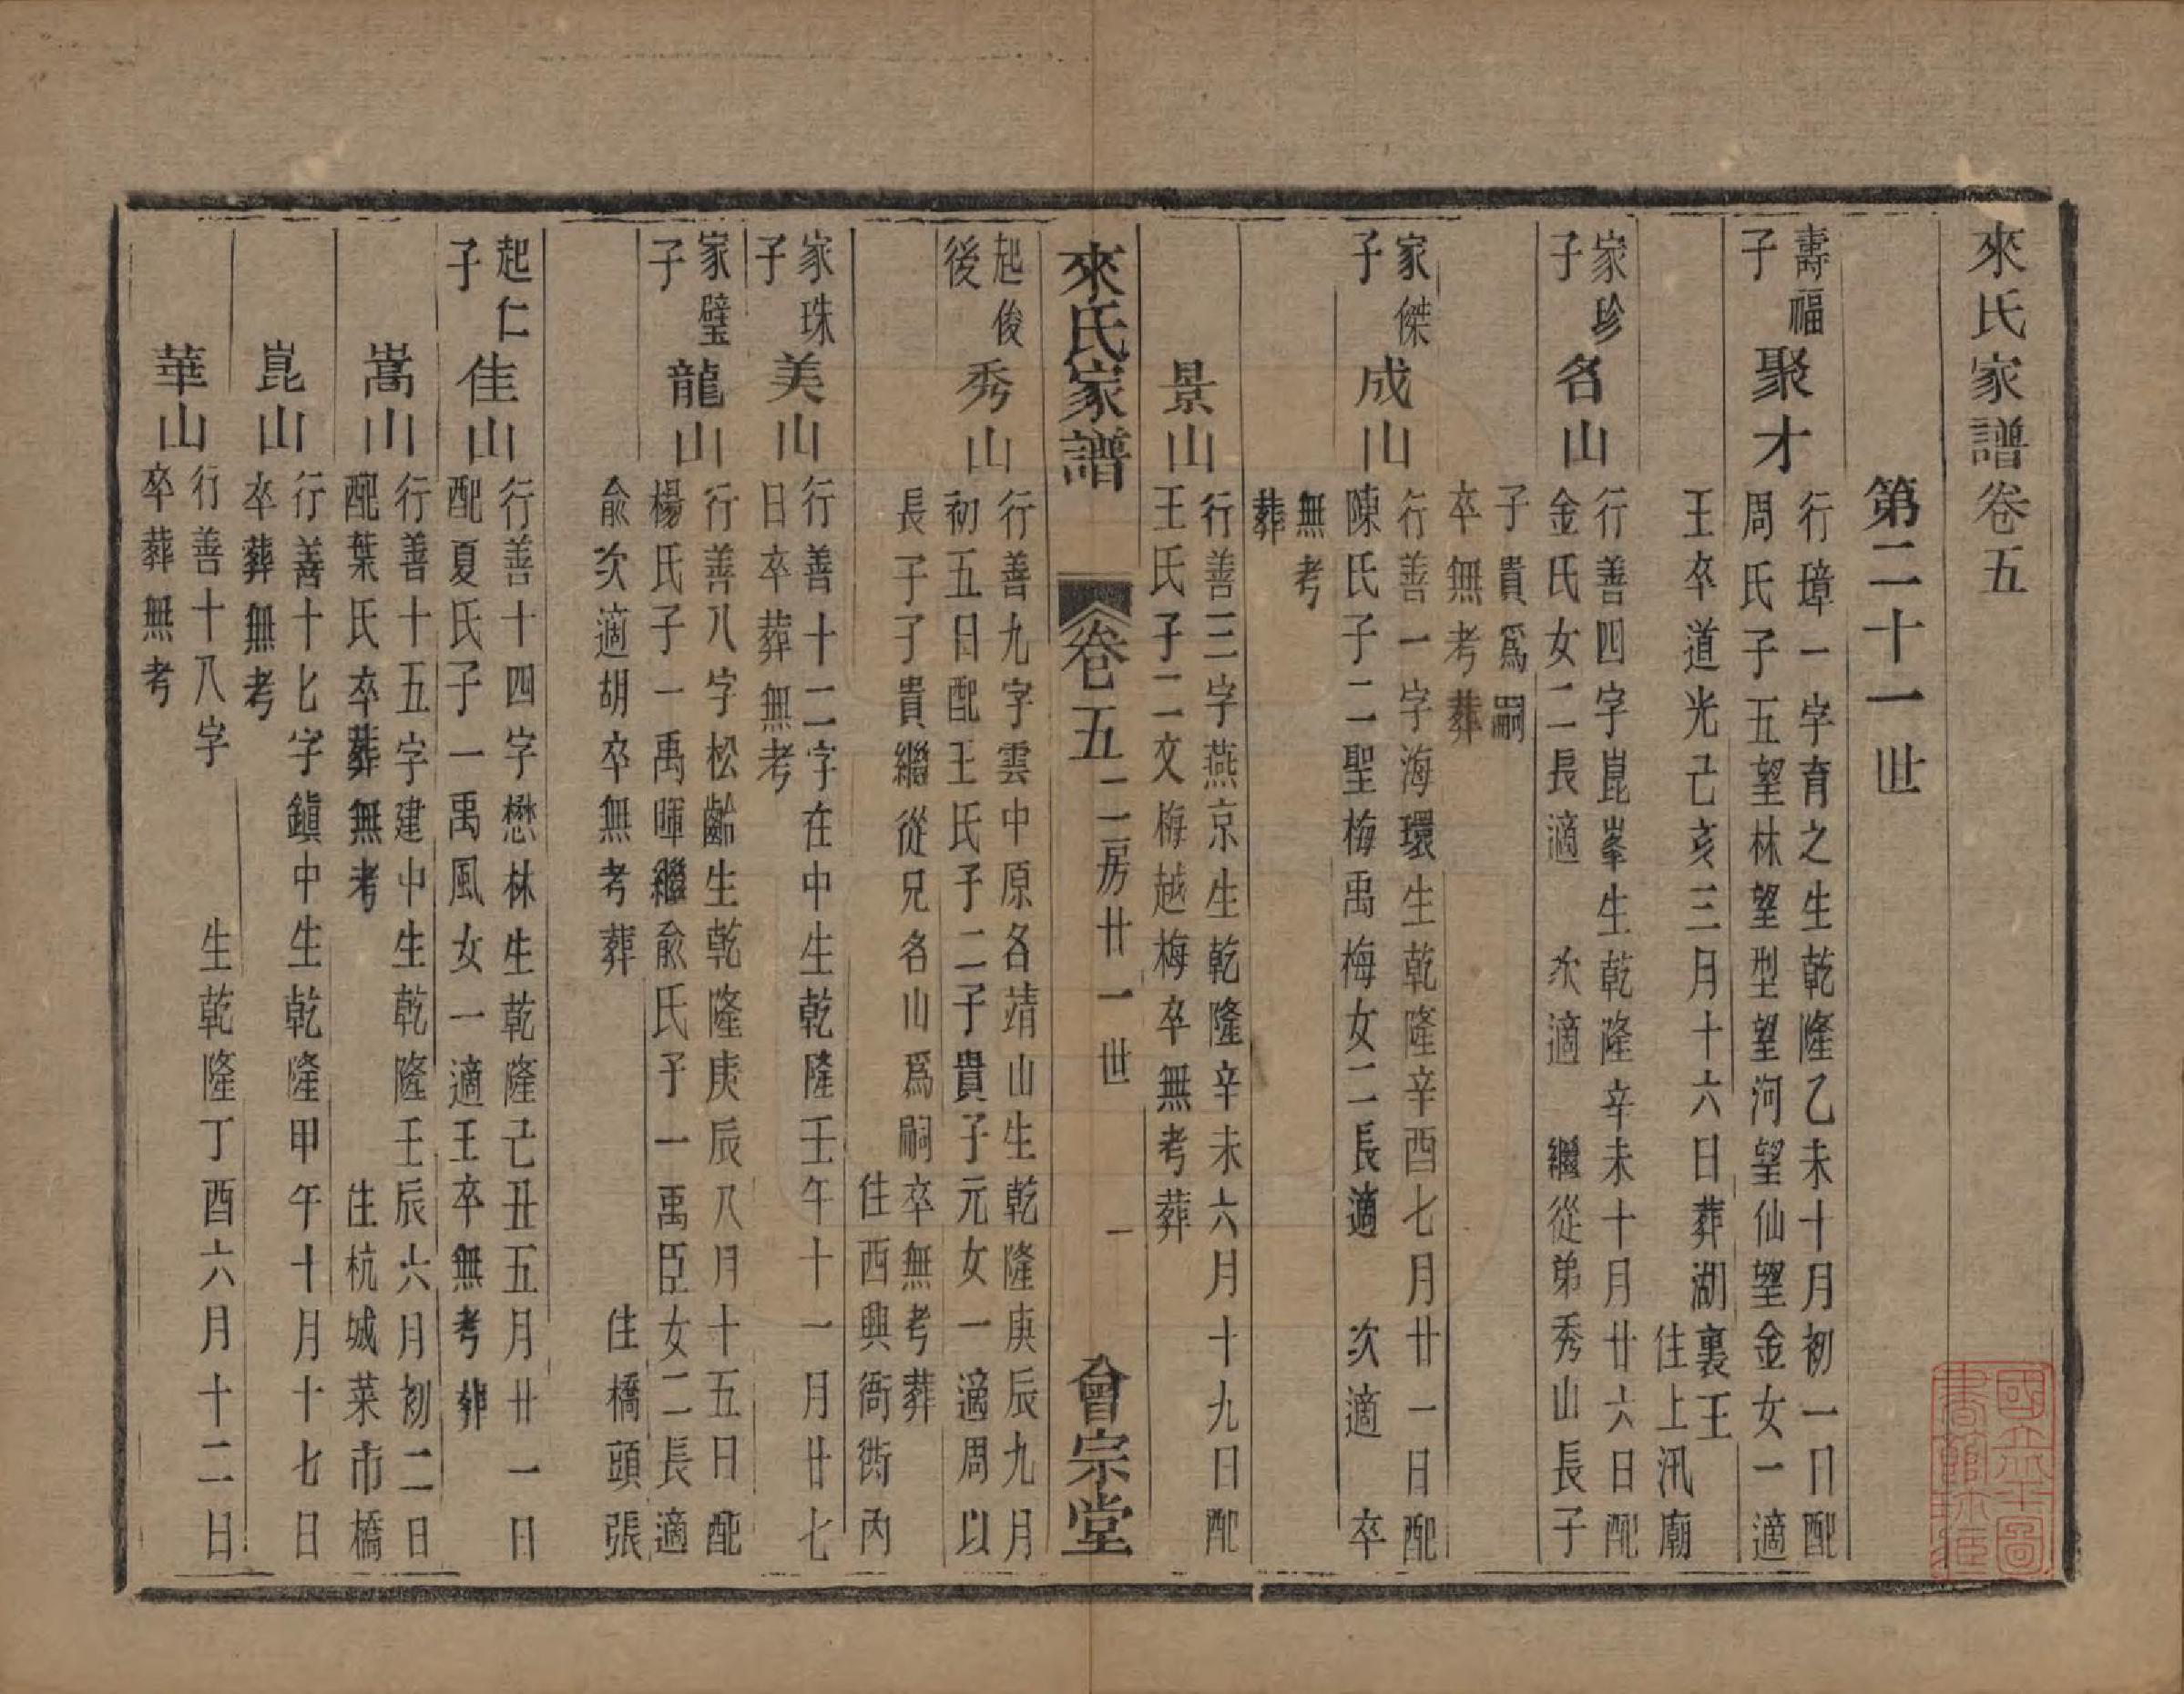 來氏家譜卷五
第二十一世
壽福
子
聚才
行璋一字育之生乾隆乙未十月初一日配
周氏子五望林望型望河望仙望金女一適
王卒道光己亥三月十六日葬湖裏王
住上汛廟
家珍
子
名山
行善四字崑峯生乾隆辛未十月廿六日配
金氏女二長適 次適 繼從弟秀山長子
子貴爲嗣
卒無考葬
家傑
子
成山
行善一字海環生乾隆辛酉七月廿一日配
陳氏子二聖梅禹梅女二長適 次適 卒
無考
葬
景山
行善三字燕京生乾隆辛未六月十九日配
王氏子二文梅越梅卒無考葬
來氏家譜 卷五 二房廿一世 一 會宗堂
起俊
後
秀山
行善九字雲中原名靖山生乾隆庚辰九月
初五日配王氏子二子貴子元女一適周以
長子子貴繼從兄名山爲嗣卒無考葬
住西興衙衖內
家珠
子
美山
行善十二字在中生乾隆壬午十一月廿七
日卒葬無考
家璧
子
龍山
行善八字松齡生乾隆庚辰八月十五日配
楊氏子一禹暉繼俞氏子一禹臣女二長適
俞次適胡卒無考葬 住橋頭張
起仁
子
佳山
行善十四字懋林生乾隆己丑五月廿一日
配夏氏子一禹風女一適王卒無考葬
嵩山
行善十五字建中生乾隆壬辰六月初二日
配葉氏卒葬無考 住杭城菜市橋
崑山
行善十七字鎮中生乾隆甲午十月十七日
卒葬無考
華山
行善十八字 生乾隆丁酉六月十二日
卒葬無考
國立北平圖
書館珍藏